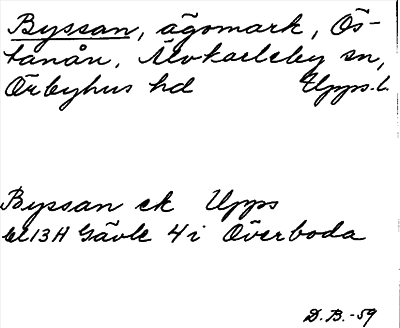 Byssan, ägomark, Ös-
tanån, Älvkarleby sn,
Örbyhus hd Upps. l.
Byssan ek Upps
bl 13H Gävle 4i Överboda
D.B.-59